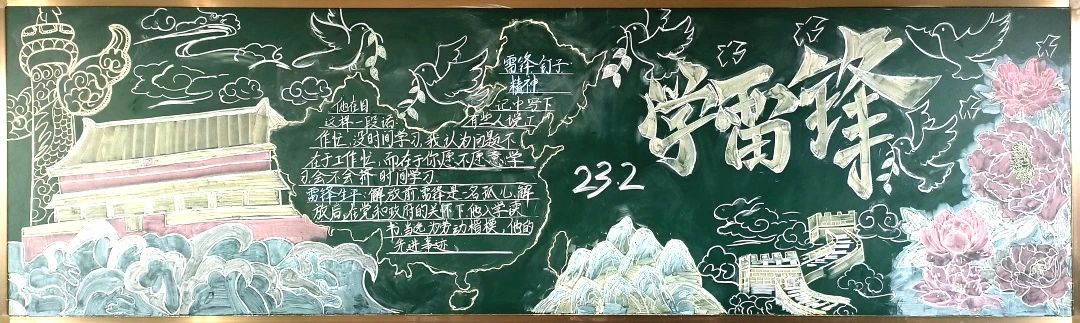 雷锋句子
精神
他在日
记中写下
这样一段话
有些人说工
作忙、没时间学习,我认为问题不
在于工作忙,而在于你愿不愿意学
习会不会挤时间学习.
雷锋生平:解放前雷锋是一名孤儿,解
放后在党和政府的关怀下他入学读
书当选为劳动楷模,他的
先进事迹
23.2
学雷锋